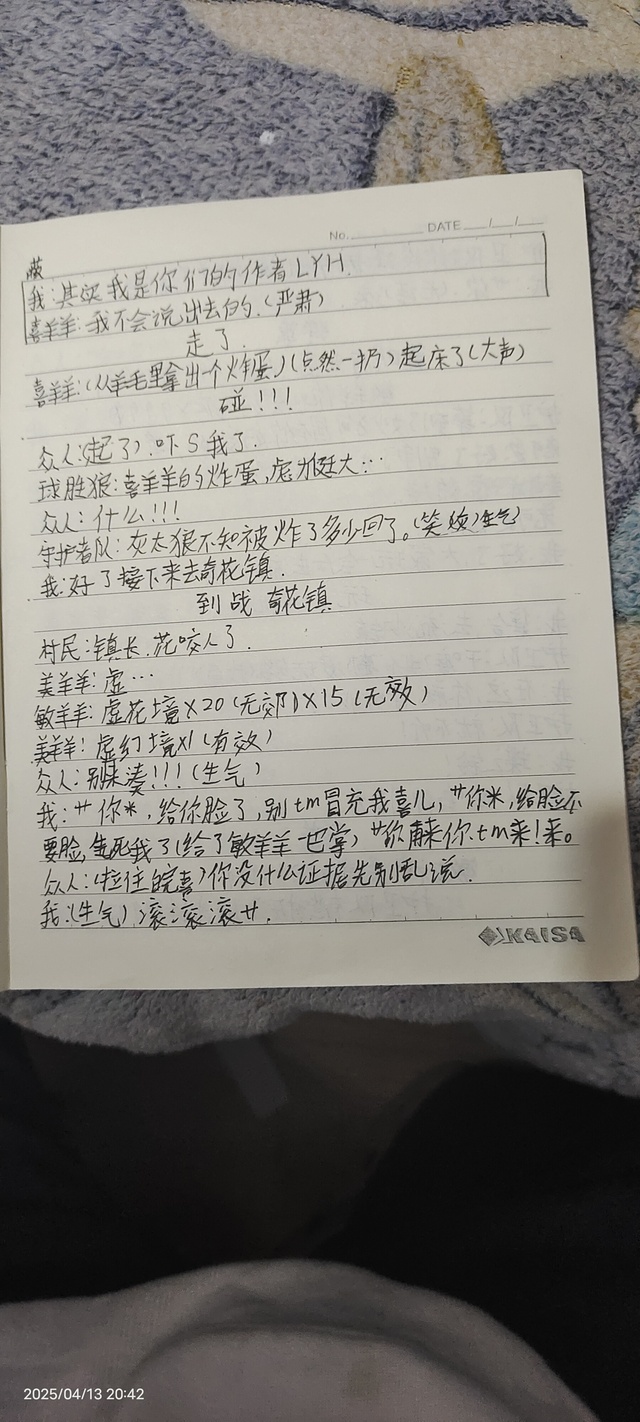 No. DATE / /
蔽
我:其实我是你们的作者LYH.
喜羊羊:我不会说出去的.(严肃)
走了.
喜羊羊:(从羊毛里拿出一个炸蛋)(点然一扔)起床了(大声)
碰!!!
众人:(起了).吓S我了.
球胜狼:喜羊羊的炸蛋,威挺大…
众人:什么!!!
守护者队:灰太狼不知被炸了多少回了。(笑)(生气)
我:好了接下来去奇花镇.
到战 奇花镇
村民:镇长.花咬人了.
美羊羊:虚…
敏羊羊:虚花境X20(无效)X15(无效)
美羊羊:虚幻境X1(有效)
众人:别来凑!!!(生气)
我:艹你米,给你脸了,别tm冒充我喜儿,艹你米,给脸不
要脸,生死我了(给了敏羊羊一巴掌)艹你再来你.tm来!来。
众人:(拉住皖喜)你没什么证据先别乱说.
我:(生气)滚滚滚艹.
KAISA
2025/04/13 20:42